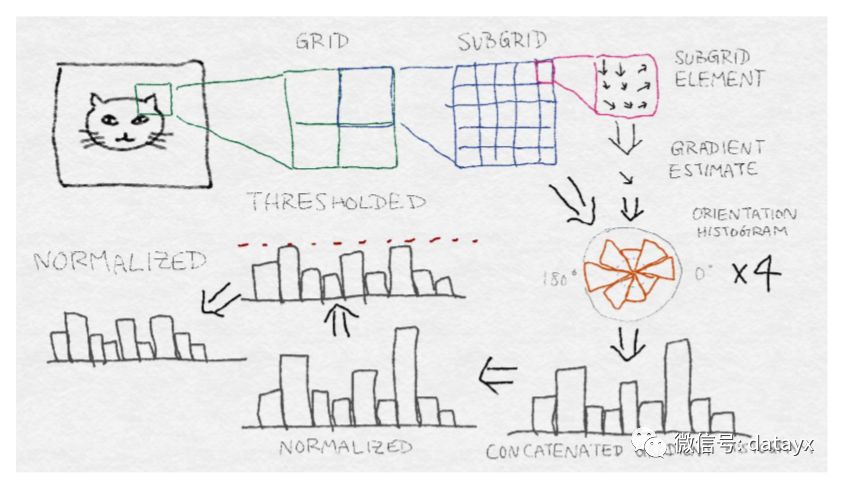 GRID
SUBGRID
SUBGRID
ELEMENT
GRADIENT
ESTIMATE
THRESHOLDED
ORIENTATION
HISTOGRAM
NORMALIZED
180°
0°
×4
NORMALIZED
CONCATENATED
微信号: datayx